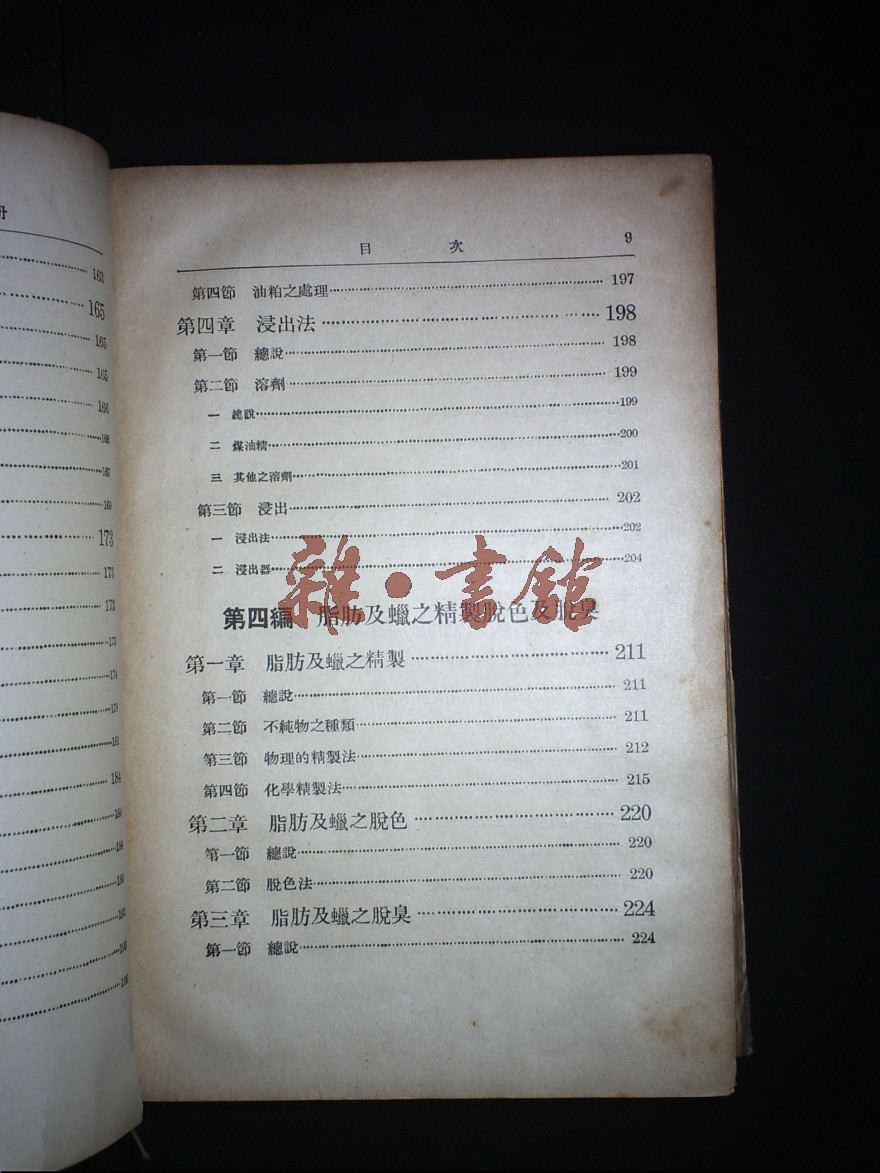 163
165
165
165
166
166
167
169
173
171
173
173
174
178
181
184
184
目　次　9
第四節　油粕之處理 197
第四章　浸出法 198
第一節　總說 198
第二節　溶劑 199
一　總說 199
二　煤油精 200
三　其他之溶劑 201
第三節　浸出 202
一　浸出法 202
二　浸出器 204
雜·書館
第四編　脂肪及蠟之精製脫色及脫臭
第一章　脂肪及蠟之精製 211
第一節　總說 211
第二節　不純物之種類 211
第三節　物理的精製法 212
第四節　化學精製法 215
第二章　脂肪及蠟之脫色 220
第一節　總說 220
第二節　脫色法 220
第三章　脂肪及蠟之脫臭 224
第一節　總說 224